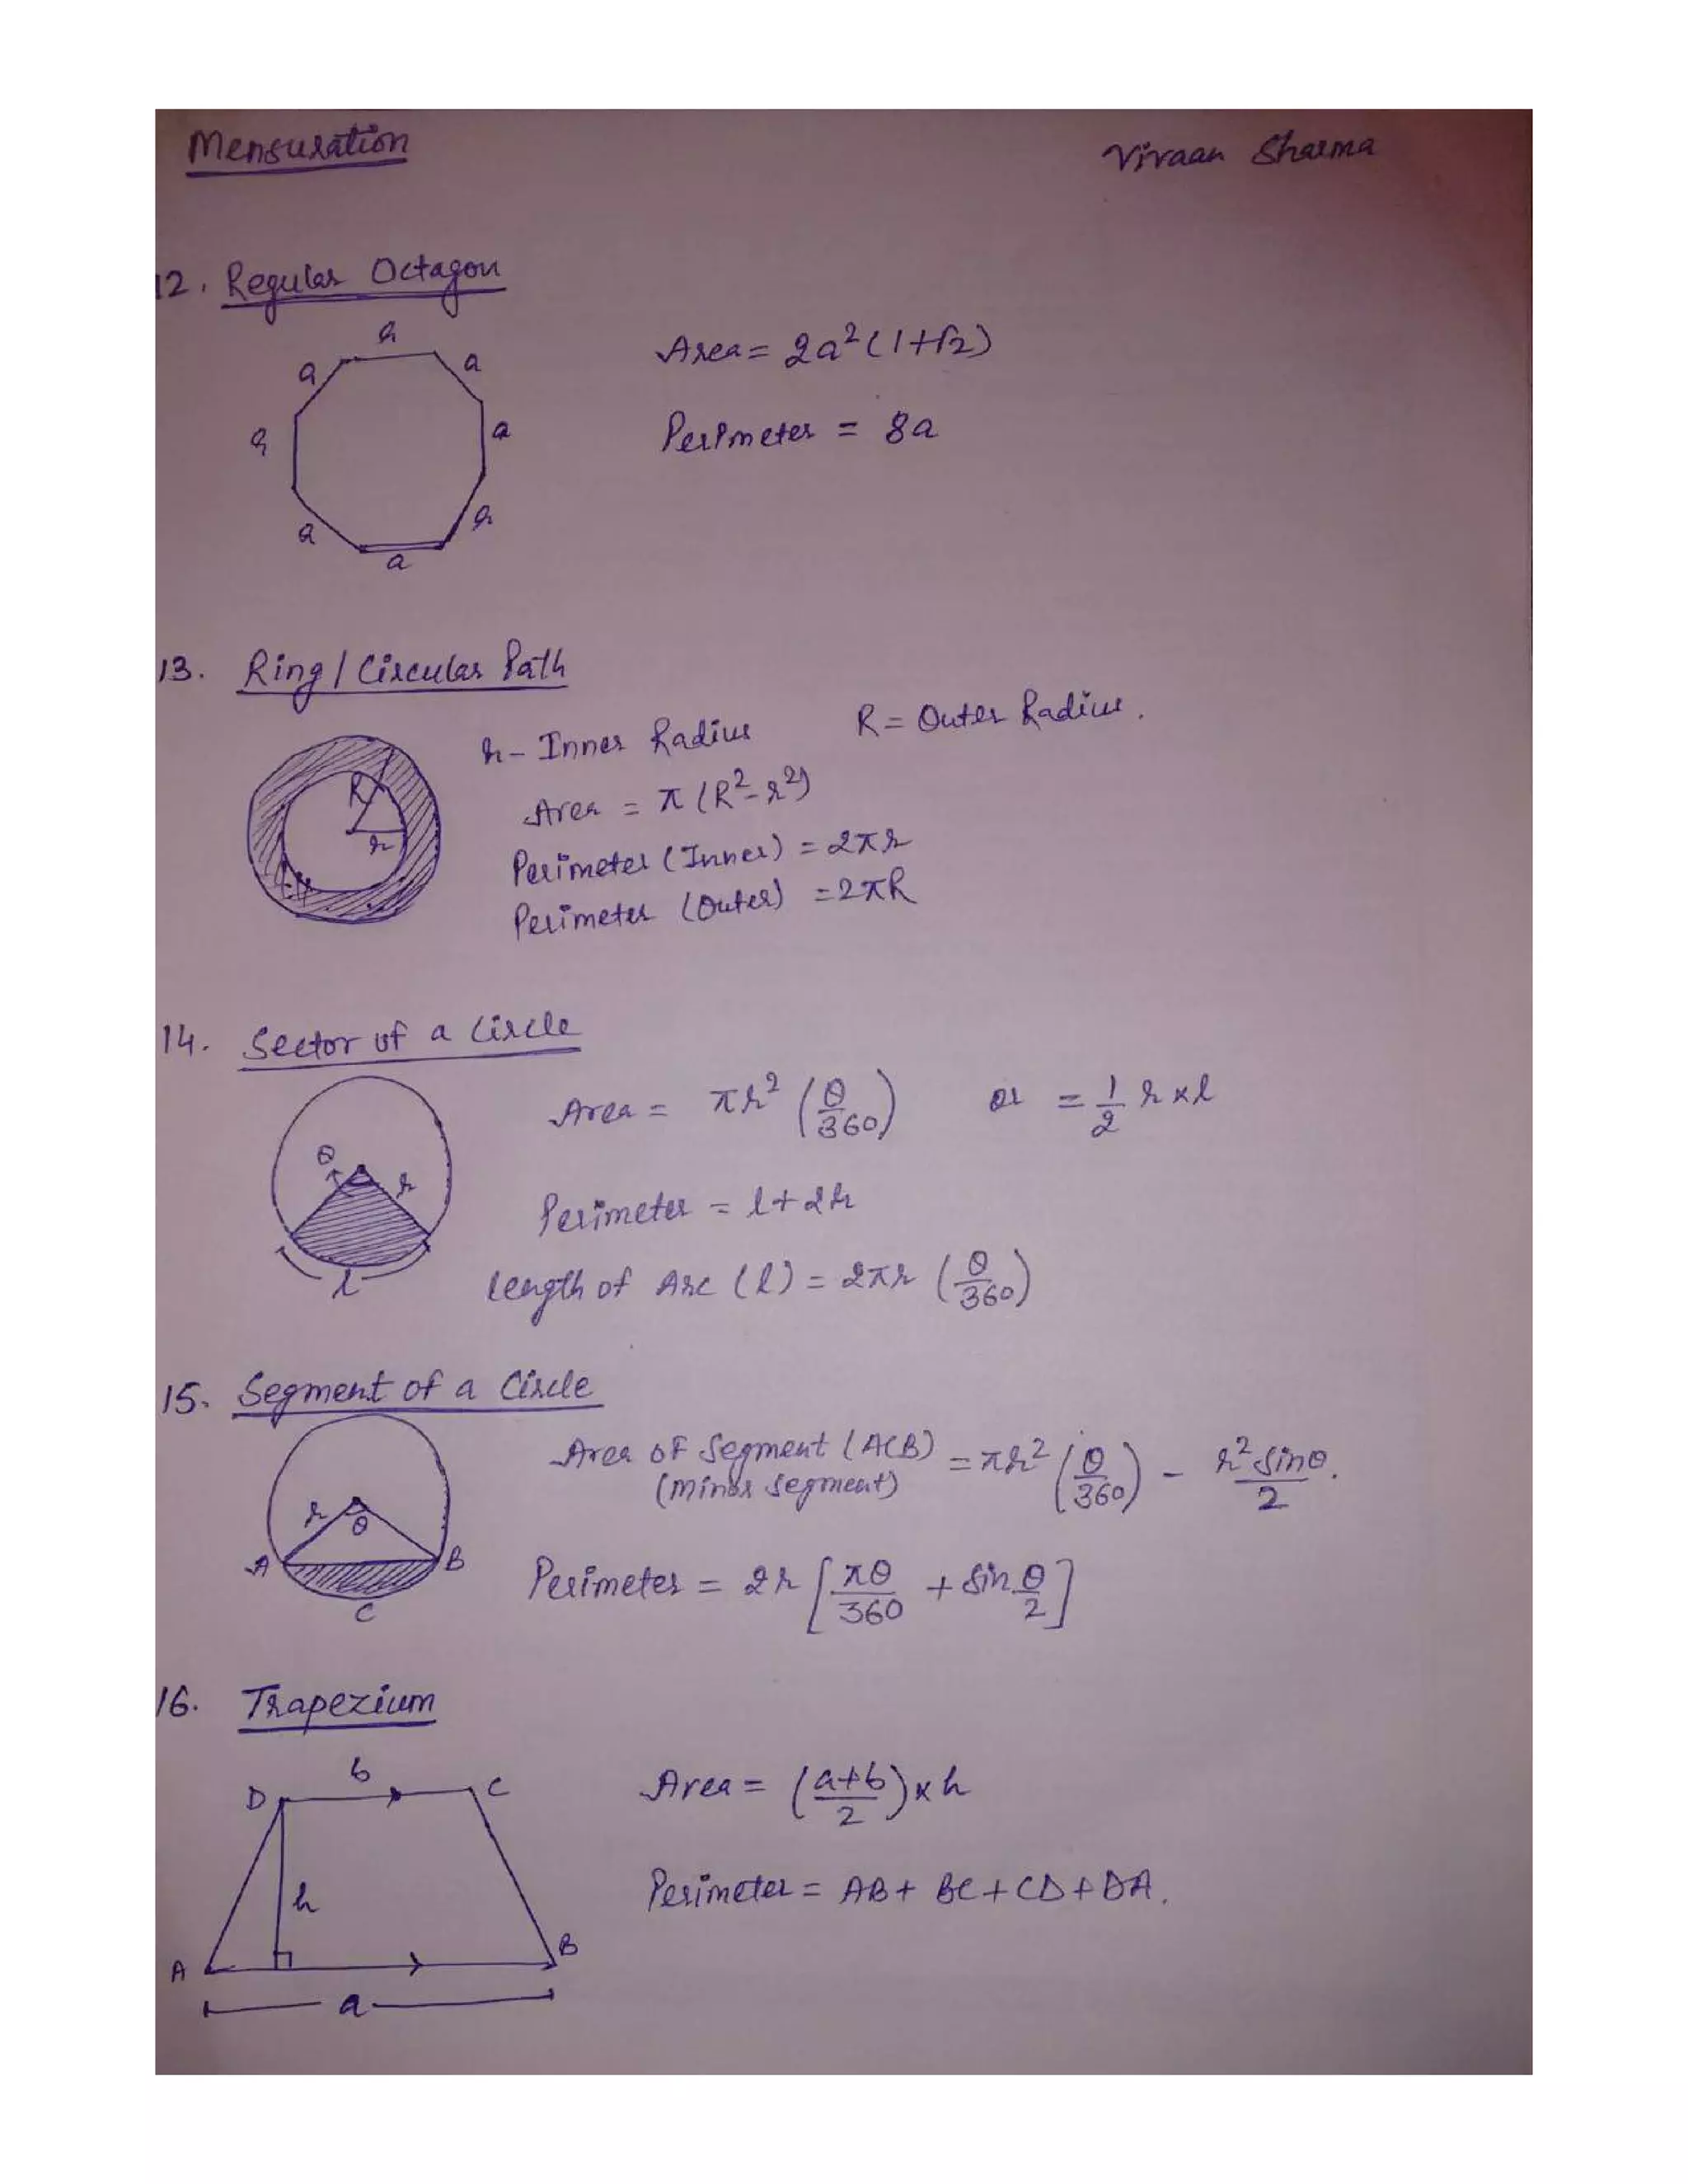 Mensuration
Vivaan Sharma
12. Regular Octagon
a
a
a
a
a
a
a
a
Area = 2a²(1+√2)
Perimeter = 8a
13. Ring / Circular Path
r - Inner Radius R = Outer Radius.
R
r
Area = π (R²-r²)
Perimeter (Inner) = 2πr
Perimeter (Outer) = 2πR
14. Sector of a Circle
Area = πr² (θ/360) or = 1/2 r × l
θ
r
l
Perimeter = l + 2r
Length of Arc (l) = 2πr (θ/360)
15. Segment of a Circle
Area of Segment (ACB) = πr² (θ/360) - r² sinθ/2.
(minor segment)
r
θ
A
B
C
Perimeter = 2r [πθ/360 + sin θ/2]
16. Trapezium
b
D
C
h
A
B
a
Area = (a+b/2) × h
Perimeter = AB + BC + CD + DA.